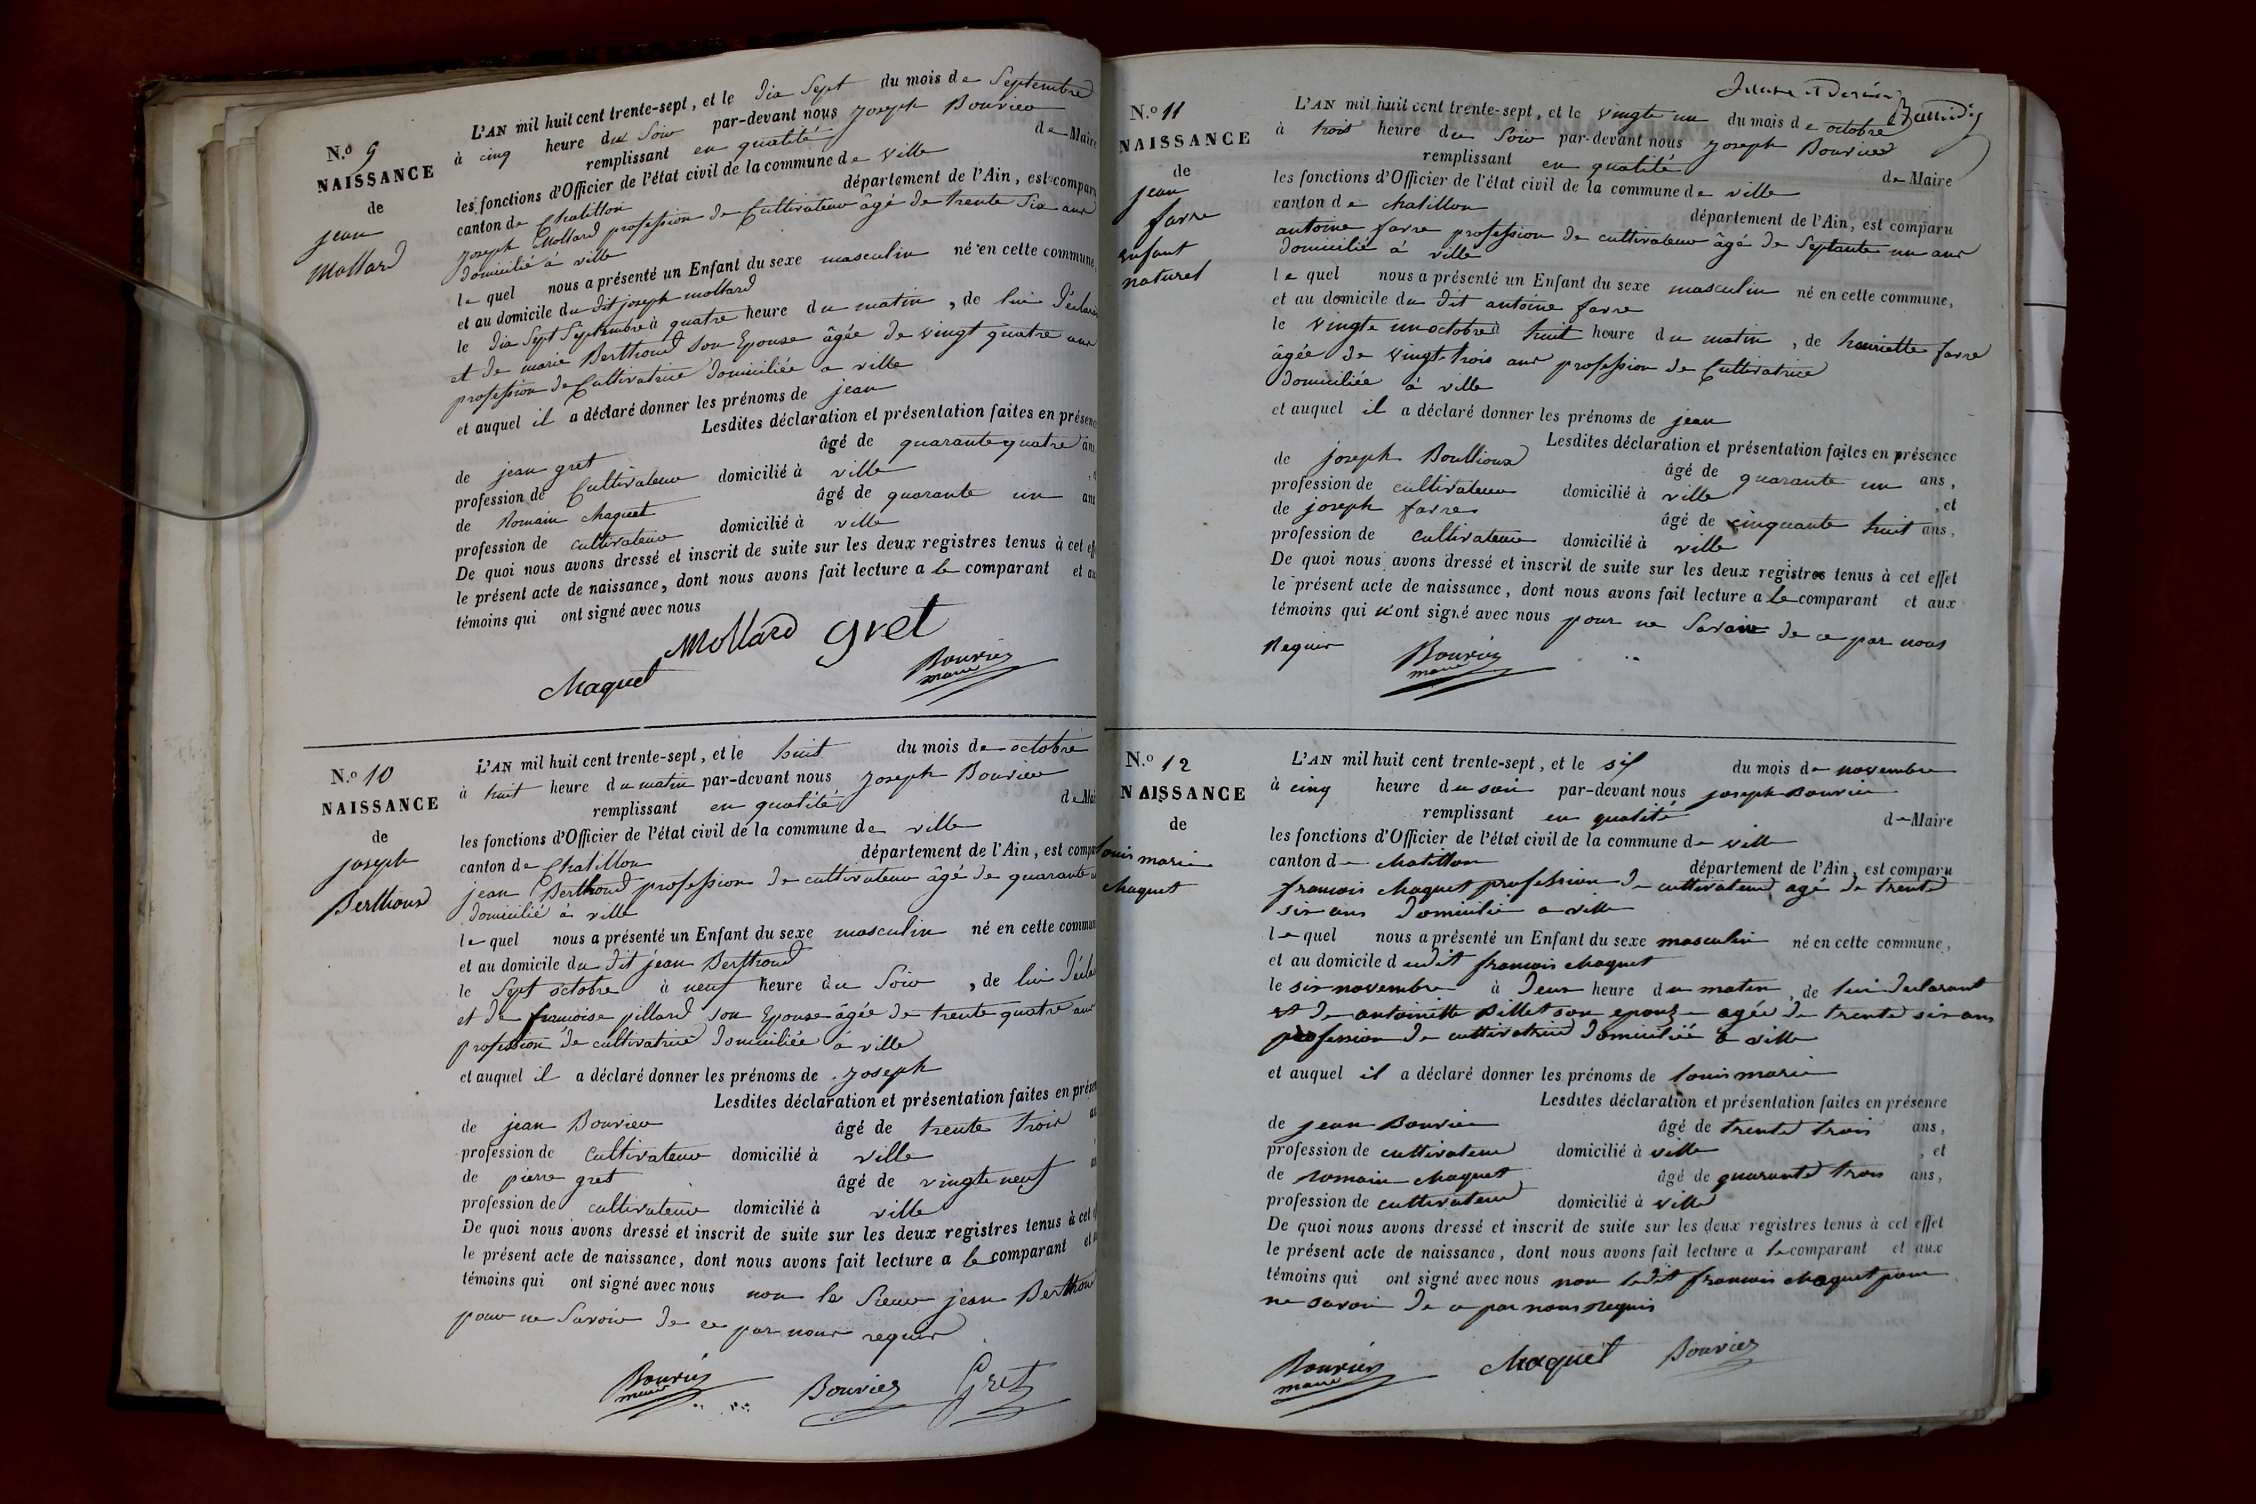 N.o 9
NAISSANCE
de
jean
Mollard
L'AN mil huit cent trente-sept, et le dix sept du mois de Septembre
à cinq heure du Soir par-devant nous joseph Bouvier
remplissant en qualité de Maire
les fonctions d'Officier de l'état civil de la commune de ville
canton de Chatillon département de l'Ain, est compar
joseph Mollard profession de Cultivateur âgé de trente Six ans
domicilié à ville
le quel nous a présenté un Enfant du sexe masculin né en cette commune,
et au domicile du dit joseph mollard
le dix Sept Septembre à quatre heure du matin, de lui Déclar
et de marie Berthoud son Epouse âgée de vingt quatre ans
profession de Cultivatrice domiciliée a ville
et auquel il a déclaré donner les prénoms de jean
Lesdites déclaration et présentation faites en présenc
de jean gret âgé de quarante quatre ans
profession de Cultivateur domicilié à ville
de Romain Chaquet âgé de quarante un ans
profession de cultivateur domicilié à ville
De quoi nous avons dressé et inscrit de suite sur les deux registres tenus à cet eff
le présent acte de naissance, dont nous avons fait lecture a le comparant et au
témoins qui ont signé avec nous
Mollard gret
Chaquet Bouvier
maire
N.o 10
NAISSANCE
de
joseph
Berthoud
L'AN mil huit cent trente-sept, et le huit du mois de octobre
à huit heure du matin par-devant nous joseph Bouvier
remplissant en qualité de Mai
les fonctions d'Officier de l'état civil de la commune de ville
canton de Chatillon département de l'Ain, est compar
jean Berthoud profession de cultivateur âgé de quarante
domicilié à ville
le quel nous a présenté un Enfant du sexe masculin né en cette commun
et au domicile du dit jean Berthoud
le Sept octobre à neuf heure du Soir, de lui Décla
et de francoise pillard son Epouse âgée de trente quatre ans
profession de cultivatrice domiciliée a ville
et auquel il a déclaré donner les prénoms de joseph
Lesdites déclaration et présentation faites en prése
de jean Bouvier âgé de trente trois
profession de Cultivateur domicilié à ville
de pierre gret âgé de vingte neuf
profession de cultivateur domicilié à ville
De quoi nous avons dressé et inscrit de suite sur les deux registres tenus à cet
le présent acte de naissance, dont nous avons fait lecture a le comparant et
témoins qui ont signé avec nous non le Sieur jean Berthou
pour ne Savoir de ce par nous requis
Bouvier Bouvier Gret
maire
N.o 11
NAISSANCE
de
jean
farre
enfant
naturel
L'AN mil huit cent trente-sept, et le vingte un du mois de octobre
à trois heure du Soir par-devant nous joseph Bouvier
remplissant en qualité de Maire
les fonctions d'Officier de l'état civil de la commune de ville
canton de chatillon département de l'Ain, est comparu
antoine farre profession de cultivateur âgé de Septante un ans
domicilié à ville
le quel nous a présenté un Enfant du sexe masculin né en cette commune,
et au domicile du dit antoine farre
le vingte un octobre à huit heure du matin, de henriette farre
âgée de vingt trois ans profession de Cultivatrice
domiciliée à ville
et auquel il a déclaré donner les prénoms de jean
Lesdites déclaration et présentation faites en présence
de joseph Boullioux âgé de quarante un ans,
profession de cultivateur domicilié à ville, et
de joseph farre âgé de cinquante huit ans,
profession de Cultivateur domicilié à ville
De quoi nous avons dressé et inscrit de suite sur les deux registres tenus à cet effet
le présent acte de naissance, dont nous avons fait lecture a le comparant et aux
témoins qui n'ont signé avec nous pour ne Savoir de ce par nous
Requis Bouvier
maire
N.o 12
NAISSANCE
de
louis marie
Chaquet
L'AN mil huit cent trente-sept, et le six du mois de novembre
à cinq heure du soir par-devant nous joseph Bouvier
remplissant en qualité de Maire
les fonctions d'Officier de l'état civil de la commune de ville
canton de chatillon département de l'Ain, est comparu
francois Chaquet profession de cultivateur agé de trente
six ans domicilié a ville
le quel nous a présenté un Enfant du sexe masculin né en cette commune,
et au domicile dudit francois chaquet
le six novembre à deux heure du matin, de lui declarant
et de antoinette Billet son epouse agée de trente six ans
profession de cultivatrice domiciliée a ville
et auquel il a déclaré donner les prénoms de louis marie
Lesdites déclaration et présentation faites en présence
de jean Bouvier âgé de trente trois ans,
profession de cultivateur domicilié à ville, et
de romain chaquet âgé de quarante trois ans,
profession de cultivateur domicilié à ville
De quoi nous avons dressé et inscrit de suite sur les deux registres tenus à cet effet
le présent acte de naissance, dont nous avons fait lecture a le comparant et aux
témoins qui ont signé avec nous non ledit francois chaquet pour
ne savoir de ce par nous requis
Bouvier Chaquet Bouvier
maire